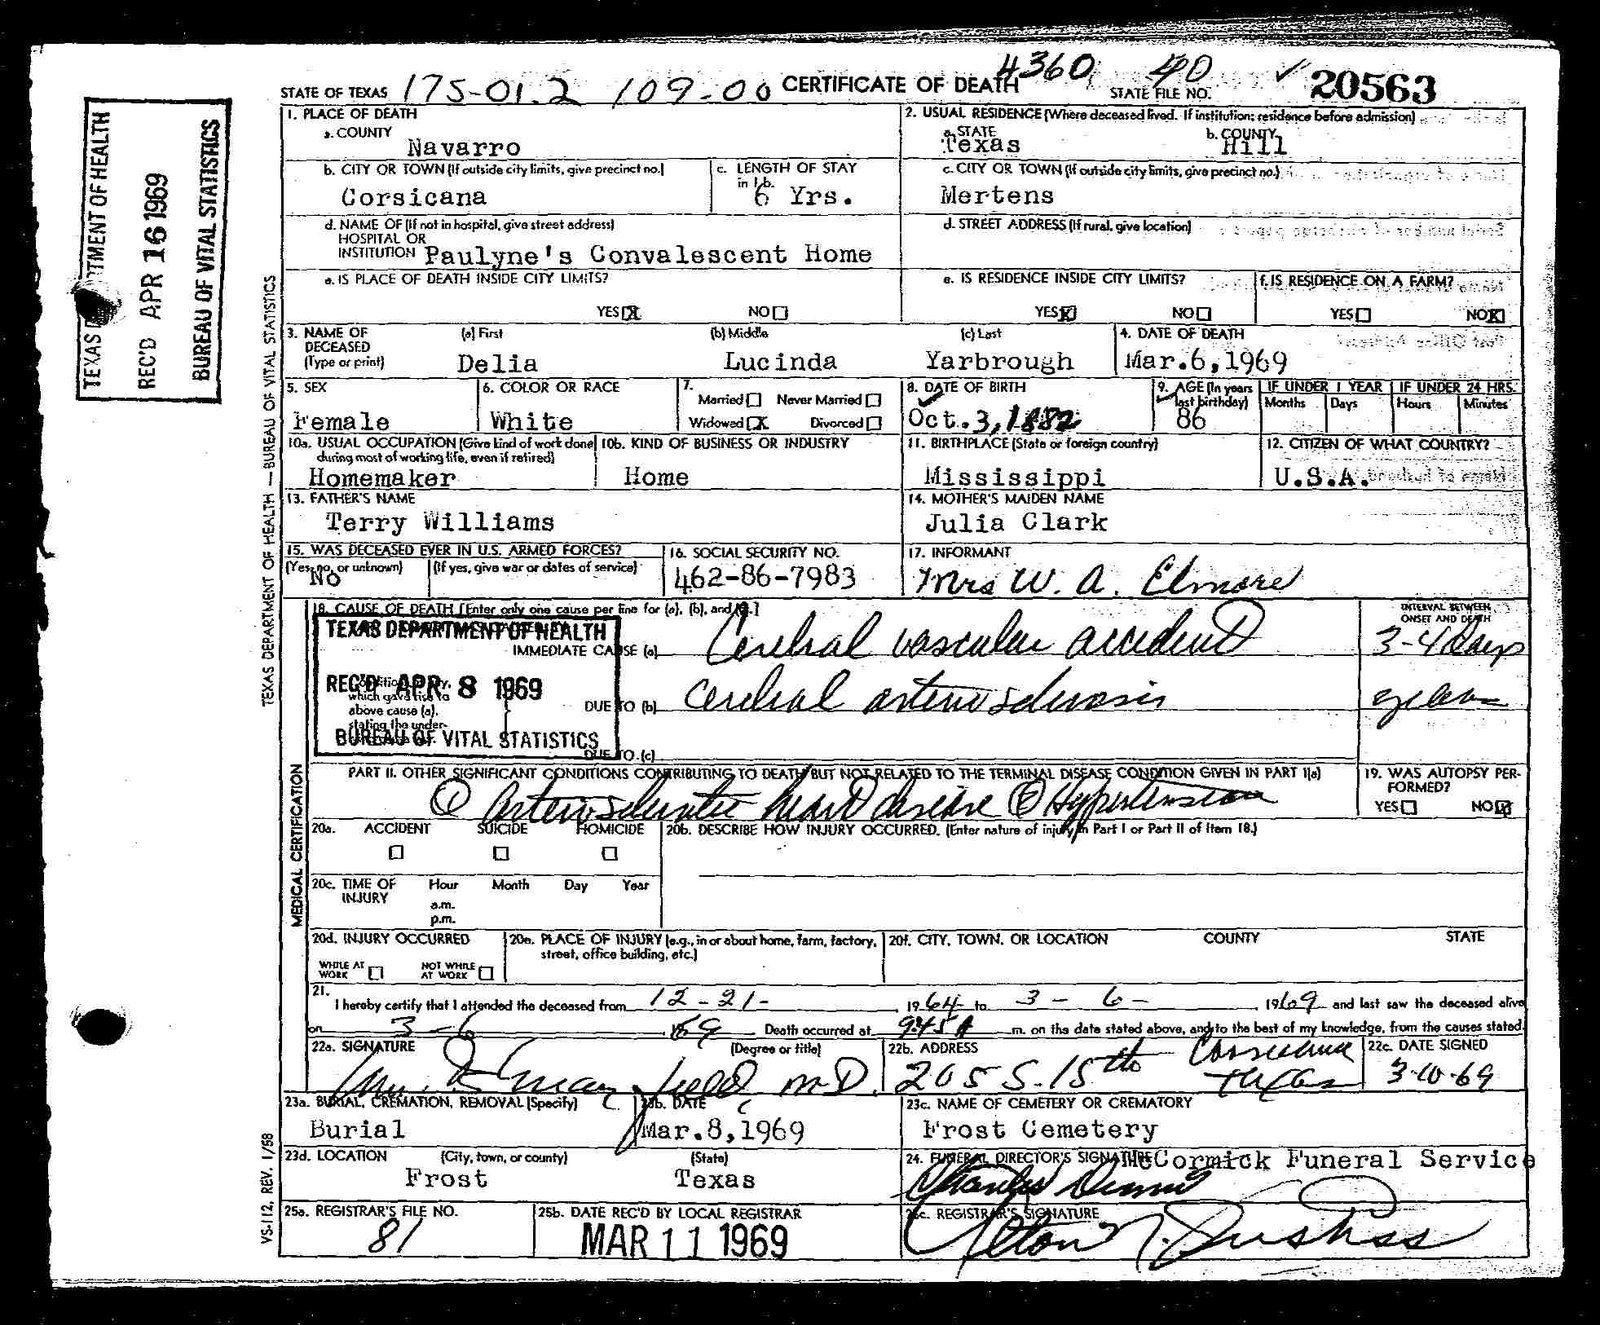 4360 40 ✓
STATE OF TEXAS 175-01.2 109-00 CERTIFICATE OF DEATH STATE FILE NO. 20563
TEXAS DEPARTMENT OF HEALTH
REC'D APR 16 1969
BUREAU OF VITAL STATISTICS
TEXAS DEPARTMENT OF HEALTH — BUREAU OF VITAL STATISTICS
1. PLACE OF DEATH
a. COUNTY
Navarro
2. USUAL RESIDENCE (Where deceased lived. If institution: residence before admission)
a. STATE b. COUNTY
Texas Hill
b. CITY OR TOWN (If outside city limits, give precinct no.)
Corsicana
c. LENGTH OF STAY
in 1b.
6 Yrs.
c. CITY OR TOWN (If outside city limits, give precinct no.)
Mertens
d. NAME OF (If not in hospital, give street address)
HOSPITAL OR
INSTITUTION Paulyne's Convalescent Home
d. STREET ADDRESS (If rural, give location)
e. IS PLACE OF DEATH INSIDE CITY LIMITS?
YES X NO
e. IS RESIDENCE INSIDE CITY LIMITS?
YES X NO
f. IS RESIDENCE ON A FARM?
YES NO X
3. NAME OF DECEASED (Type or print)
(a) First (b) Middle (c) Last
Delia Lucinda Yarbrough
4. DATE OF DEATH
Mar.6,1969
5. SEX
Female
6. COLOR OR RACE
White
7.
Married Never Married
Widowed X Divorced
8. DATE OF BIRTH
Oct.3,1882
9. AGE (In years last birthday)
86
IF UNDER 1 YEAR
Months Days
IF UNDER 24 HRS.
Hours Minutes
10a. USUAL OCCUPATION (Give kind of work done during most of working life, even if retired)
Homemaker
10b. KIND OF BUSINESS OR INDUSTRY
Home
11. BIRTHPLACE (State or foreign country)
Mississippi
12. CITIZEN OF WHAT COUNTRY?
U.S.A.
13. FATHER'S NAME
Terry Williams
14. MOTHER'S MAIDEN NAME
Julia Clark
15. WAS DECEASED EVER IN U.S. ARMED FORCES?
(Yes, no, or unknown) (If yes, give war or dates of service)
No
16. SOCIAL SECURITY NO.
462-86-7983
17. INFORMANT
Mrs W. A. Elmore
18. CAUSE OF DEATH [Enter only one cause per line for (a), (b), and (c).]
TEXAS DEPARTMENT OF HEALTH
REC'D APR 8 1969
BUREAU OF VITAL STATISTICS
INTERVAL BETWEEN ONSET AND DEATH
IMMEDIATE CAUSE (a) Cerebral vascular accident 3-4 days
which gave rise to
above cause (a),
stating the under-
DUE TO (b) Cerebral arteriosclerosis
DUE TO (c)
MEDICAL CERTIFICATION
PART II. OTHER SIGNIFICANT CONDITIONS CONTRIBUTING TO DEATH BUT NOT RELATED TO THE TERMINAL DISEASE CONDITION GIVEN IN PART I(a)
① Arteriosclerotic heart disease ② Hypertension
19. WAS AUTOPSY PERFORMED?
YES NO X
20a. ACCIDENT SUICIDE HOMICIDE
20b. DESCRIBE HOW INJURY OCCURRED. (Enter nature of injury in Part I or Part II of Item 18.)
20c. TIME OF INJURY
Hour Month Day Year
a.m.
p.m.
20d. INJURY OCCURRED
WHILE AT WORK NOT WHILE AT WORK
20e. PLACE OF INJURY (e.g., in or about home, farm, factory, street, office building, etc.)
20f. CITY, TOWN, OR LOCATION COUNTY STATE
21.
I hereby certify that I attended the deceased from 12-21- 1964 to 3-6- 1969 and last saw the deceased alive
on 3-6 69 Death occurred at 9:45 A m. on the date stated above, and to the best of my knowledge, from the causes stated.
22a. SIGNATURE (Degree or title)
M.D.
22b. ADDRESS
205 S. 15th Corsicana Texas
22c. DATE SIGNED
3-10-69
23a. BURIAL, CREMATION, REMOVAL (Specify)
Burial
23b. DATE
Mar.8,1969
23c. NAME OF CEMETERY OR CREMATORY
Frost Cemetery
23d. LOCATION (City, town, or county) (State)
Frost Texas
24. FUNERAL DIRECTOR'S SIGNATURE McCormick Funeral Service
Charles
25a. REGISTRAR'S FILE NO.
81
25b. DATE REC'D BY LOCAL REGISTRAR
MAR 11 1969
25c. REGISTRAR'S SIGNATURE
VS-112, REV. 1/58